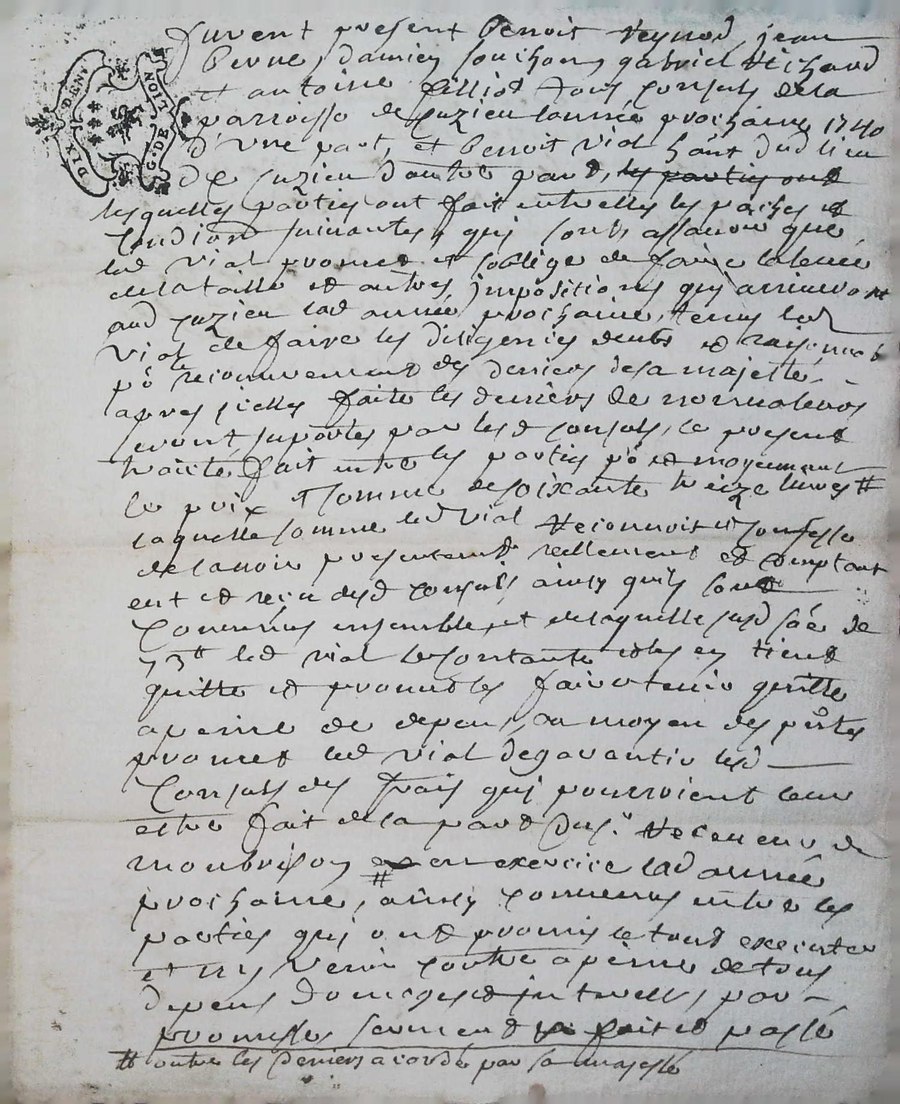 DIX H. DEN.
G. DE LION
Furent present Benoit Reynod, jean
Berne, damien souchon, gabriel Richard
et antoine filliod tous consuls de la
parroisse de Cuzieu lannee prochaine 1740
d'Une part, et Benoit vial hant dud lieu
de Cuzieu dautre part, les parties ont
lesquelles parties ont fait entrelles les paches et
Condions suivantes, qui sont assavoir que
led vial promet et soblige de faire la levee
de la taille et autres impositions qui arriveront
aud Cuzieu lad année prochaine, tenu led
vial de faire les diligences deubs et raisonnab
po le recouvrement des deniers de sa majeste
apres icelles faite les deniers de nonvaleurs
seront suportes par lesd consuls, le present
traicté fait entre les parties po et moyennant
le prix et somme de soixante treize livres #
laquelle somme led vial Reconnoit et Confesse
de lavoir presentement reellement et Comptant
eut et recu desd consuls ainsy quils sont
Convenus ensemble, et de laquelle susd soe de
73# led vial se contante et les en tient
quitte et promet les faire tenir quitte
a peine de depens, au moyen des pntes
promet led vial de garantir lesd
Consuls des frais qui pourroient leur
estre fait de la part du sr Receveur de
monbrison # en exercice lad année
prochaine, ainsy Convenus entre les
parties qui ont promis le tout executer
et ny venir contre a peine de tous
depens domages et interests, par
promesses serment fait et passé
# outre les deniers acordé par sa majesté